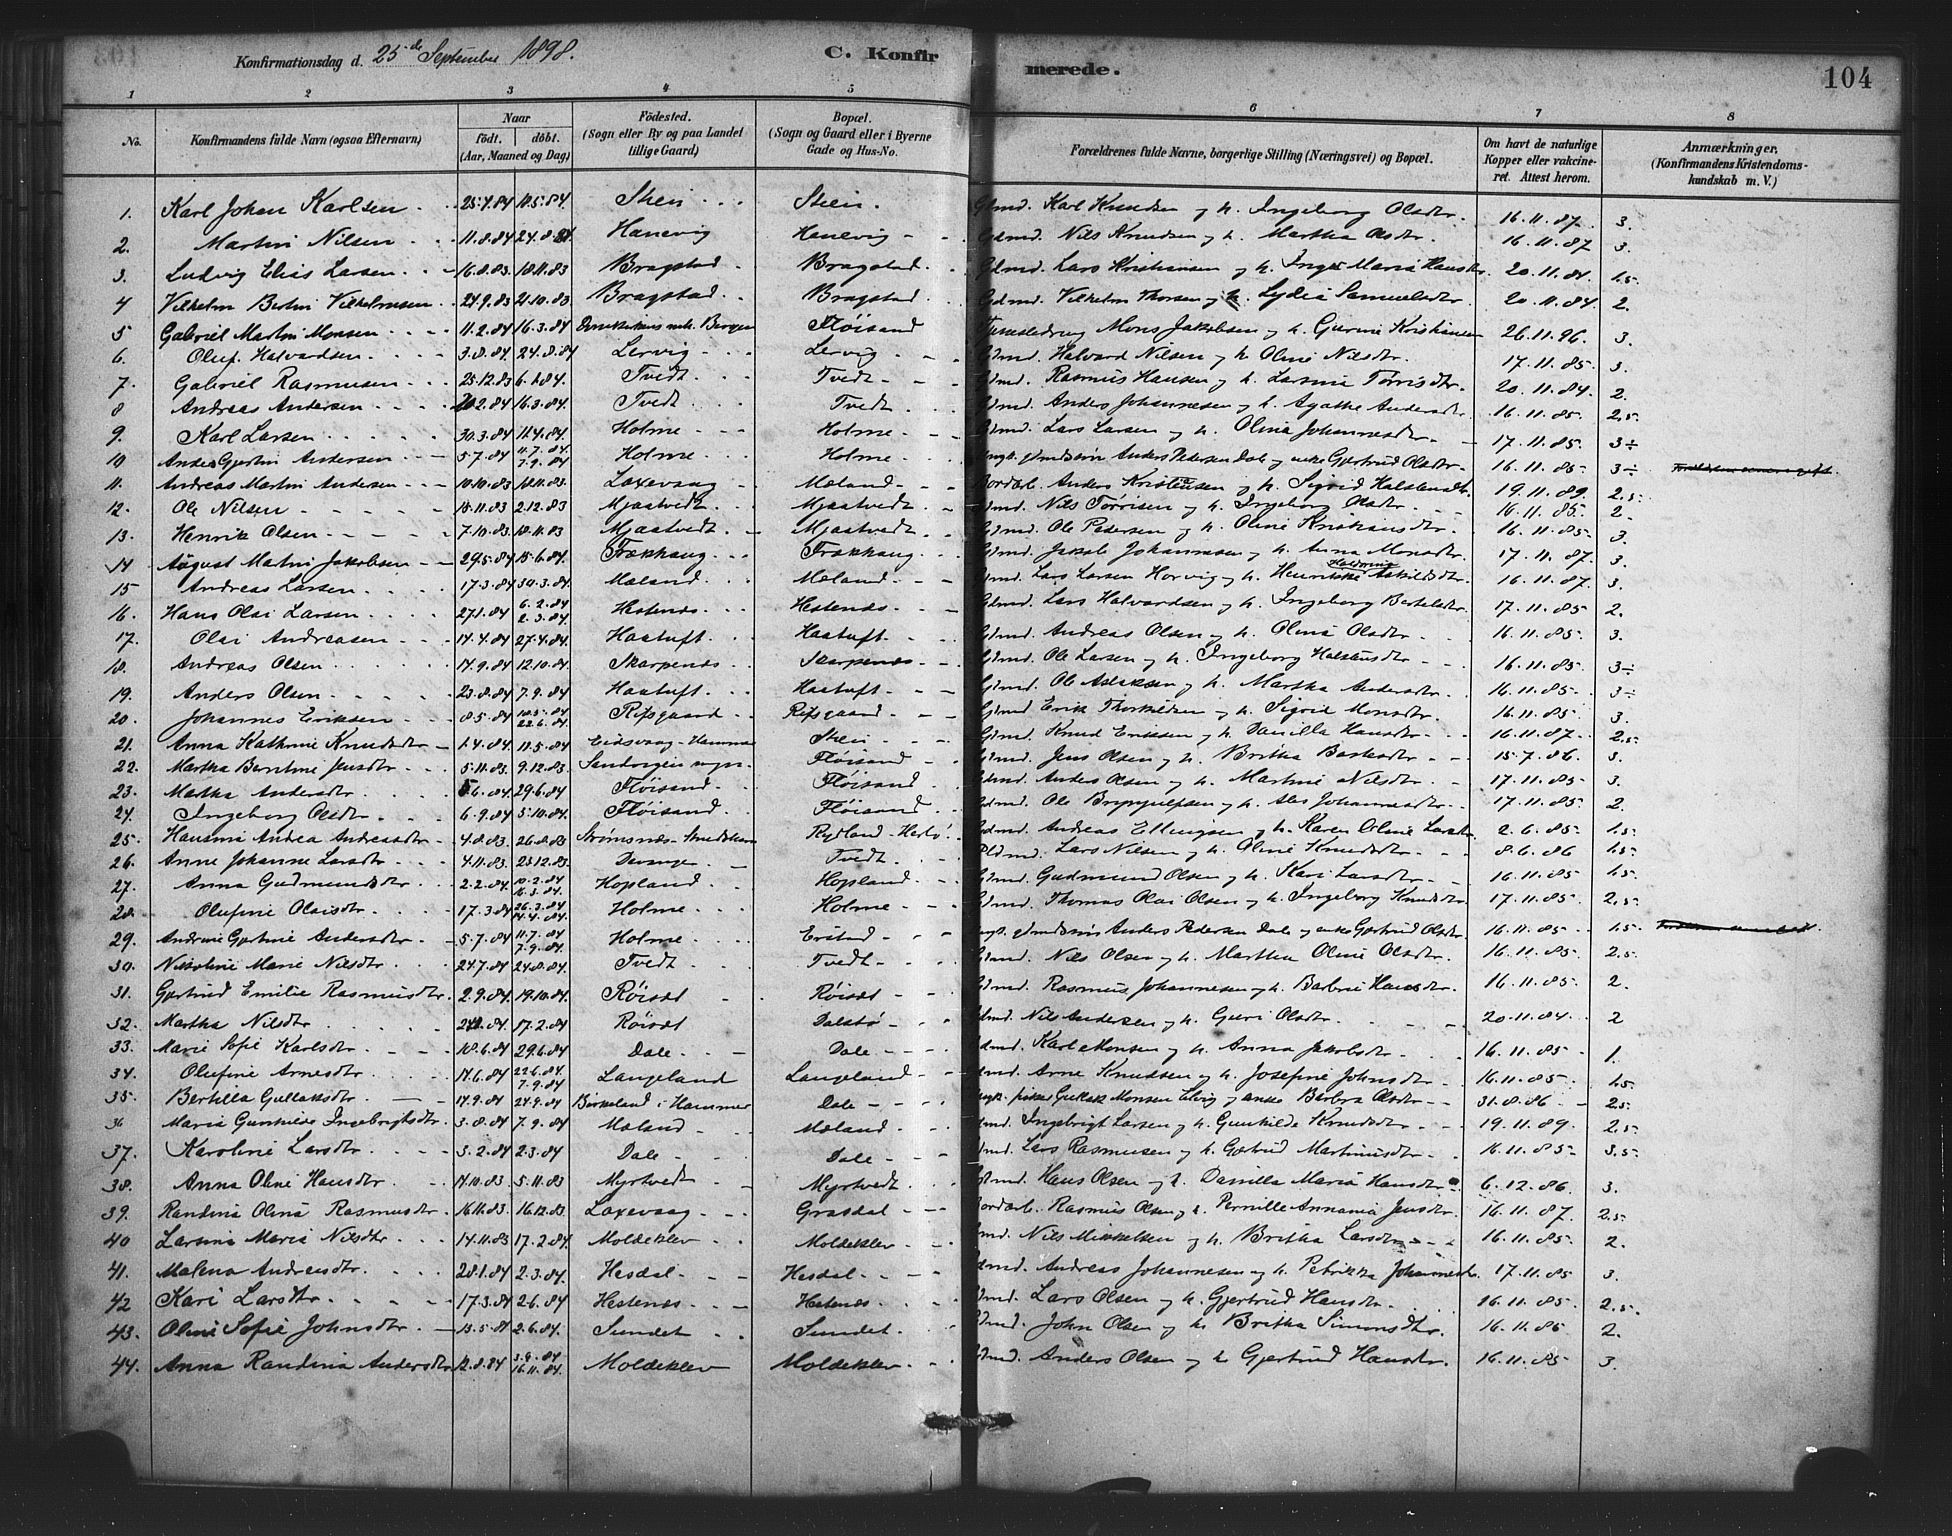 Konfirmationsdag d. 25de September 1898.
C. Konfirmerede.
104
1 2 3 4 5 6 7 8
No. Konfirmandens fulde Navn (ogsaa Efternavn) Naar födt. döbt. (Aar, Maaned og Dag) Födested. (Sogn eller By og paa Landet tillige Gaard) Bopæl. (Sogn og Gaard eller i Byerne Gade og Hus-No. Forældrenes fulde Navne, borgerlige Stilling (Næringsvei) og Bopæl. Om havt de naturlige Kopper eller vakcineret. Attest herom. Anmærkninger. (Konfirmandens Kristendomskundskab m. V.)
1. Karl Johan Karlsen 25.4.84 18.5.84. Stein Stein. Gdmd. Karl Knudsen og h. Ingeborg Olsdtr. 16.11.87. 3.
2. Martin Nilsen 11.8.84 24.8.84 Hanevig Hanevig Gdmd. Nils Knudsen og h. Martha Olsdtr. 16.11.87 3.
3. Ludvig Elias Larsen 16.8.83. 18.11.83 Bragstad Bragstad. Gdmd. Lars Kristiansen og h. Inger Maria Hansdtr 20.11.84. 1.5
4 Vilhelm Bertin Vilhelmsen 24.9.83 21.10.83 Bragstad Bragstad Gdmd. Vilhelm Thorsen og h. Lydia Samuelsdtr 20.11.84. 2.
5 Gabriel Martin Monsen 11.2.84 16.3.84 Bergen Flöisand Mons Jakobsen og h. Gurine Kristiansen 26.11.96. 3.
6. Oluf Halvardsen 3.8.84. 24.8.84 Lervig Lervig Gdmd. Halvard Nilsen og h Oline Nilsdtr. 17.11.85. 3.
7. Gabriel Rasmusen 25.12.83 6.1.84. Tvedt Tvedt Gdmd. Rasmus Hansen og h. Larsina Tørrisdtr. 20.11.84. 2.
8 Andreas Andersen 2.84 16.3.84. Tvedt Tvedt Gdmd. Anders Johannesen og h. Agathe Andersdtr 16.11.85. 2.5
9. Karl Larsen 30.3.84 14.4.84. Holme Holme Gdmd. Lars Larsen og h. Olina Johannesdtr. 17.11.85. 3÷
10 Anders Gjertin Andersen 5.7.84 11.7.84. 7.9.84 Holme Holme Anders Pedersen Dale og enke Gjertrud Olsdtr. 16.11.85. 3÷
11. Andreas Martin Andersen 10.10.83 18.11.83. Laxevaag Mæland Anders Kristensen og h. Sigrid Halstensdtr. 19.11.89. 2.5
12. Ole Nilsen 15.11.83 2.12.83 Mjaatvedt Mjaatvedt Gdmd. Nils Tørrisen og h. Ingeborg Olsdtr. 16.11.85. 2.
13. Henrik Olsen 7.10.83. 18.11.83 Mjaatvedt Mjaatvedt Gdmd. Ole Pedersen og h. Oline Kristiansdtr. 16.11.85. 3.
14 August Martin Jakobsen 29.5.84 15.6.84. Trækhaug Trækhaug Gdmd. Jakob Johannesen og h. Anna Monsdtr. 17.11.87. 3.
15 Andreas Larsen 17.3.84 30.3.84. Mæland Mæland Gdmd. Lars Larsen Horvig og h. Henrikke Askildsdtr. 16.11.87. 3.
16. Hans Olai Larsen 27.1.84 6.2.84 2.3.84. Hestenes Hestenes Gdmd. Lars Halvardsen og h. Ingeborg Bertelsdtr. 17.11.85 2.
17. Olai Andreasen 14.4.84 27.4.84. Haatuft Haatuft Gdmd. Andreas Olsen og h. Olina Olsdtr 16.11.85. 3.
18. Andreas Olsen 14.9.84 12.10.84. Skarpenes Skarpenes Gdmd. Ole Larsen og h. Ingeborg Halstensdtr 16.11.85. 3÷
19. Anders Olsen 23.8.84 7.9.84 Haatuft Haatuft Gdmd. Ole Aslaksen og h. Martha Andersdtr 16.11.85. 3÷
20. Johannes Eriksen 8.5.84 18.5.84 22.6.84. Refsgaard Refsgaard Gdmd. Erik Thorkildsen og h. Sigrid Monsdtr 16.11.85. 3.
21. Anna Kathrine Knudsdtr 1.4.84. 11.5.84 Eidsvaag - Hammer Stein Gdmd. Knud Eriksen og h. Danilla Hansdtr 16.11.87. 2.5
22. Martha Berntine Jensdtr 5.11.83. 9.12.83. Sandvigen sogn. Flöisand Gdmd. Jens Olsen og h. Britha 15.7.86. 3.
23. Martha Andersdtr 6.84. 29.6.84 Flöisand Flöisand Gdmd. Anders Olsen og h. Martine Nilsdtr 17.11.85. 3.
24. Ingeborg Olsdtr 6.9.84 5.10.84. Flöisand Flöisand Gdmd. Ole Brynjulfsen og h. Johannesdtr 17.11.85. 2.
25. Hansine Andrea Andreasdtr 4.8.83 26.8.83 Strømsnes Rydland - Herlø. Gdmd. Andreas Ellingsen og h. Karen Oline Larsdtr 2.6.85. 1.5
26. Anne Johanne Larsdtr 4.11.83. 23.12.83. Tvedt Pldmd. Lars Nilsen og h. Oline Knudsdtr 8.6.86 1.5
27. Anna Gudmundsdtr 2.2.84. 10.2.84 16.3.84. Hopland Hopland Gdmd. Gudmund Olsen og h. Kari Larsdtr 16.11.85. 1.5
28. Olufine Olaisdtr 17.3.84 26.3.84 14.4.84. Holme Holme Gdmd. Thomas Olai Olsen og h. Ingeborg Knudsdtr 17.11.85. 2.5
29. Andrine Gjertine Andersdtr 5.7.84 11.7.84 7.9.84. Holme Erstad Anders Pedersen Dale og enke Gjertrud Olsdtr 16.11.85. 1.5
30. Nikoline Marie Nilsdtr 24.7.84 24.8.84. Tvedt Tvedt Gdmd. Nils Olsen og h. Martha Oline Olsdtr 16.11.85. 2.5
31. Gjertrud Emilie Rasmusdtr 2.9.84 19.10.84. Röisæt Röisæt Gdmd. Rasmus Johannesen og h. Barbra Hansdtr. 16.11.85. 2.
32. Martha Nilsdtr 84. 17.2.84 Röisæt Dalstø Gdmd. Nils Andersen og h. Guri Olsdtr 20.11.84. 2
33. Marie Sofie Karlsdtr 18.6.84 29.6.84 Dale Dale Gdmd. Karl Monsen og h. Anna Jakobsdtr 16.11.85. 1.
34. Olufine Arnesdtr 14.6.84 22.6.84 7.9.84 Langeland Langeland Gdmd. Arne Knudsen og h. Josefine Johnsdtr 16.11.85. 1.5
35. Bertilla Gullaksdtr 14.9.84 24.9.84 Birkeland i Hammer Dale Gullak Monsen Elvig og enke Barbra Olsdtr 31.8.86. 2.5
36 Maria Gunhilde Ingebrigtsdtr. 3.8.84 7.9.84 Mæland Mæland Gdmd. Ingebrigt Larsen og h. Gunhilde Knudsdtr 19.11.89. 2.5
37. Karoline Larsdtr 3.2.84 2.3.84 Dale Dale Gdmd. Lars Rasmusen og h. Gjertrud Martinusdtr 16.11.85. 3.5
38. Anna Oline Hansdtr. 14.10.83 5.11.83 Myrtvedt Myrtvedt Gdmd. Hans Olsen og h. Danilla Maria Hansdtr 6.12.86. 3.
39. Randina Olina Rasmusdtr. 16.11.83. 16.12.83. Laxevaag Grasdal Rasmus Olsen og h. Pernille Annania Jensdtr. 16.11.87. 2.5
40 Larsina Maria Nilsdtr 14.11.83 17.2.84. Moldeklev Moldeklev Gdmd. Nils Mikkelsen og h. Britha Larsdtr 16.11.85. 2.
41. Malena Andreasdtr 28.1.84 2.3.84. Hesdal Hesdal Gdmd. Andreas Johannesen og h. Petrikka Johannesdtr. 17.11.85 3.
42 Kari Larsdtr. 17.3.84 2.6.84 Hestenes Hestenes Gdmd. Lars Olsen og h. Gjertrud Hansdtr. 16.11.85. 2.5
43. Oline Sofie Johnsdtr 15.5.84 2.6.84. Sundet Sundet Gdmd. John Olsen og h. Britha Simonsdtr. 16.11.85. 2.
44. Anna Randina Andersdtr 12.8.84 3.9.84 16.11.84. Moldeklev Moldeklev Gdmd. Anders Olsen og h. Gjertrud Hansdtr. 16.11.85 3.